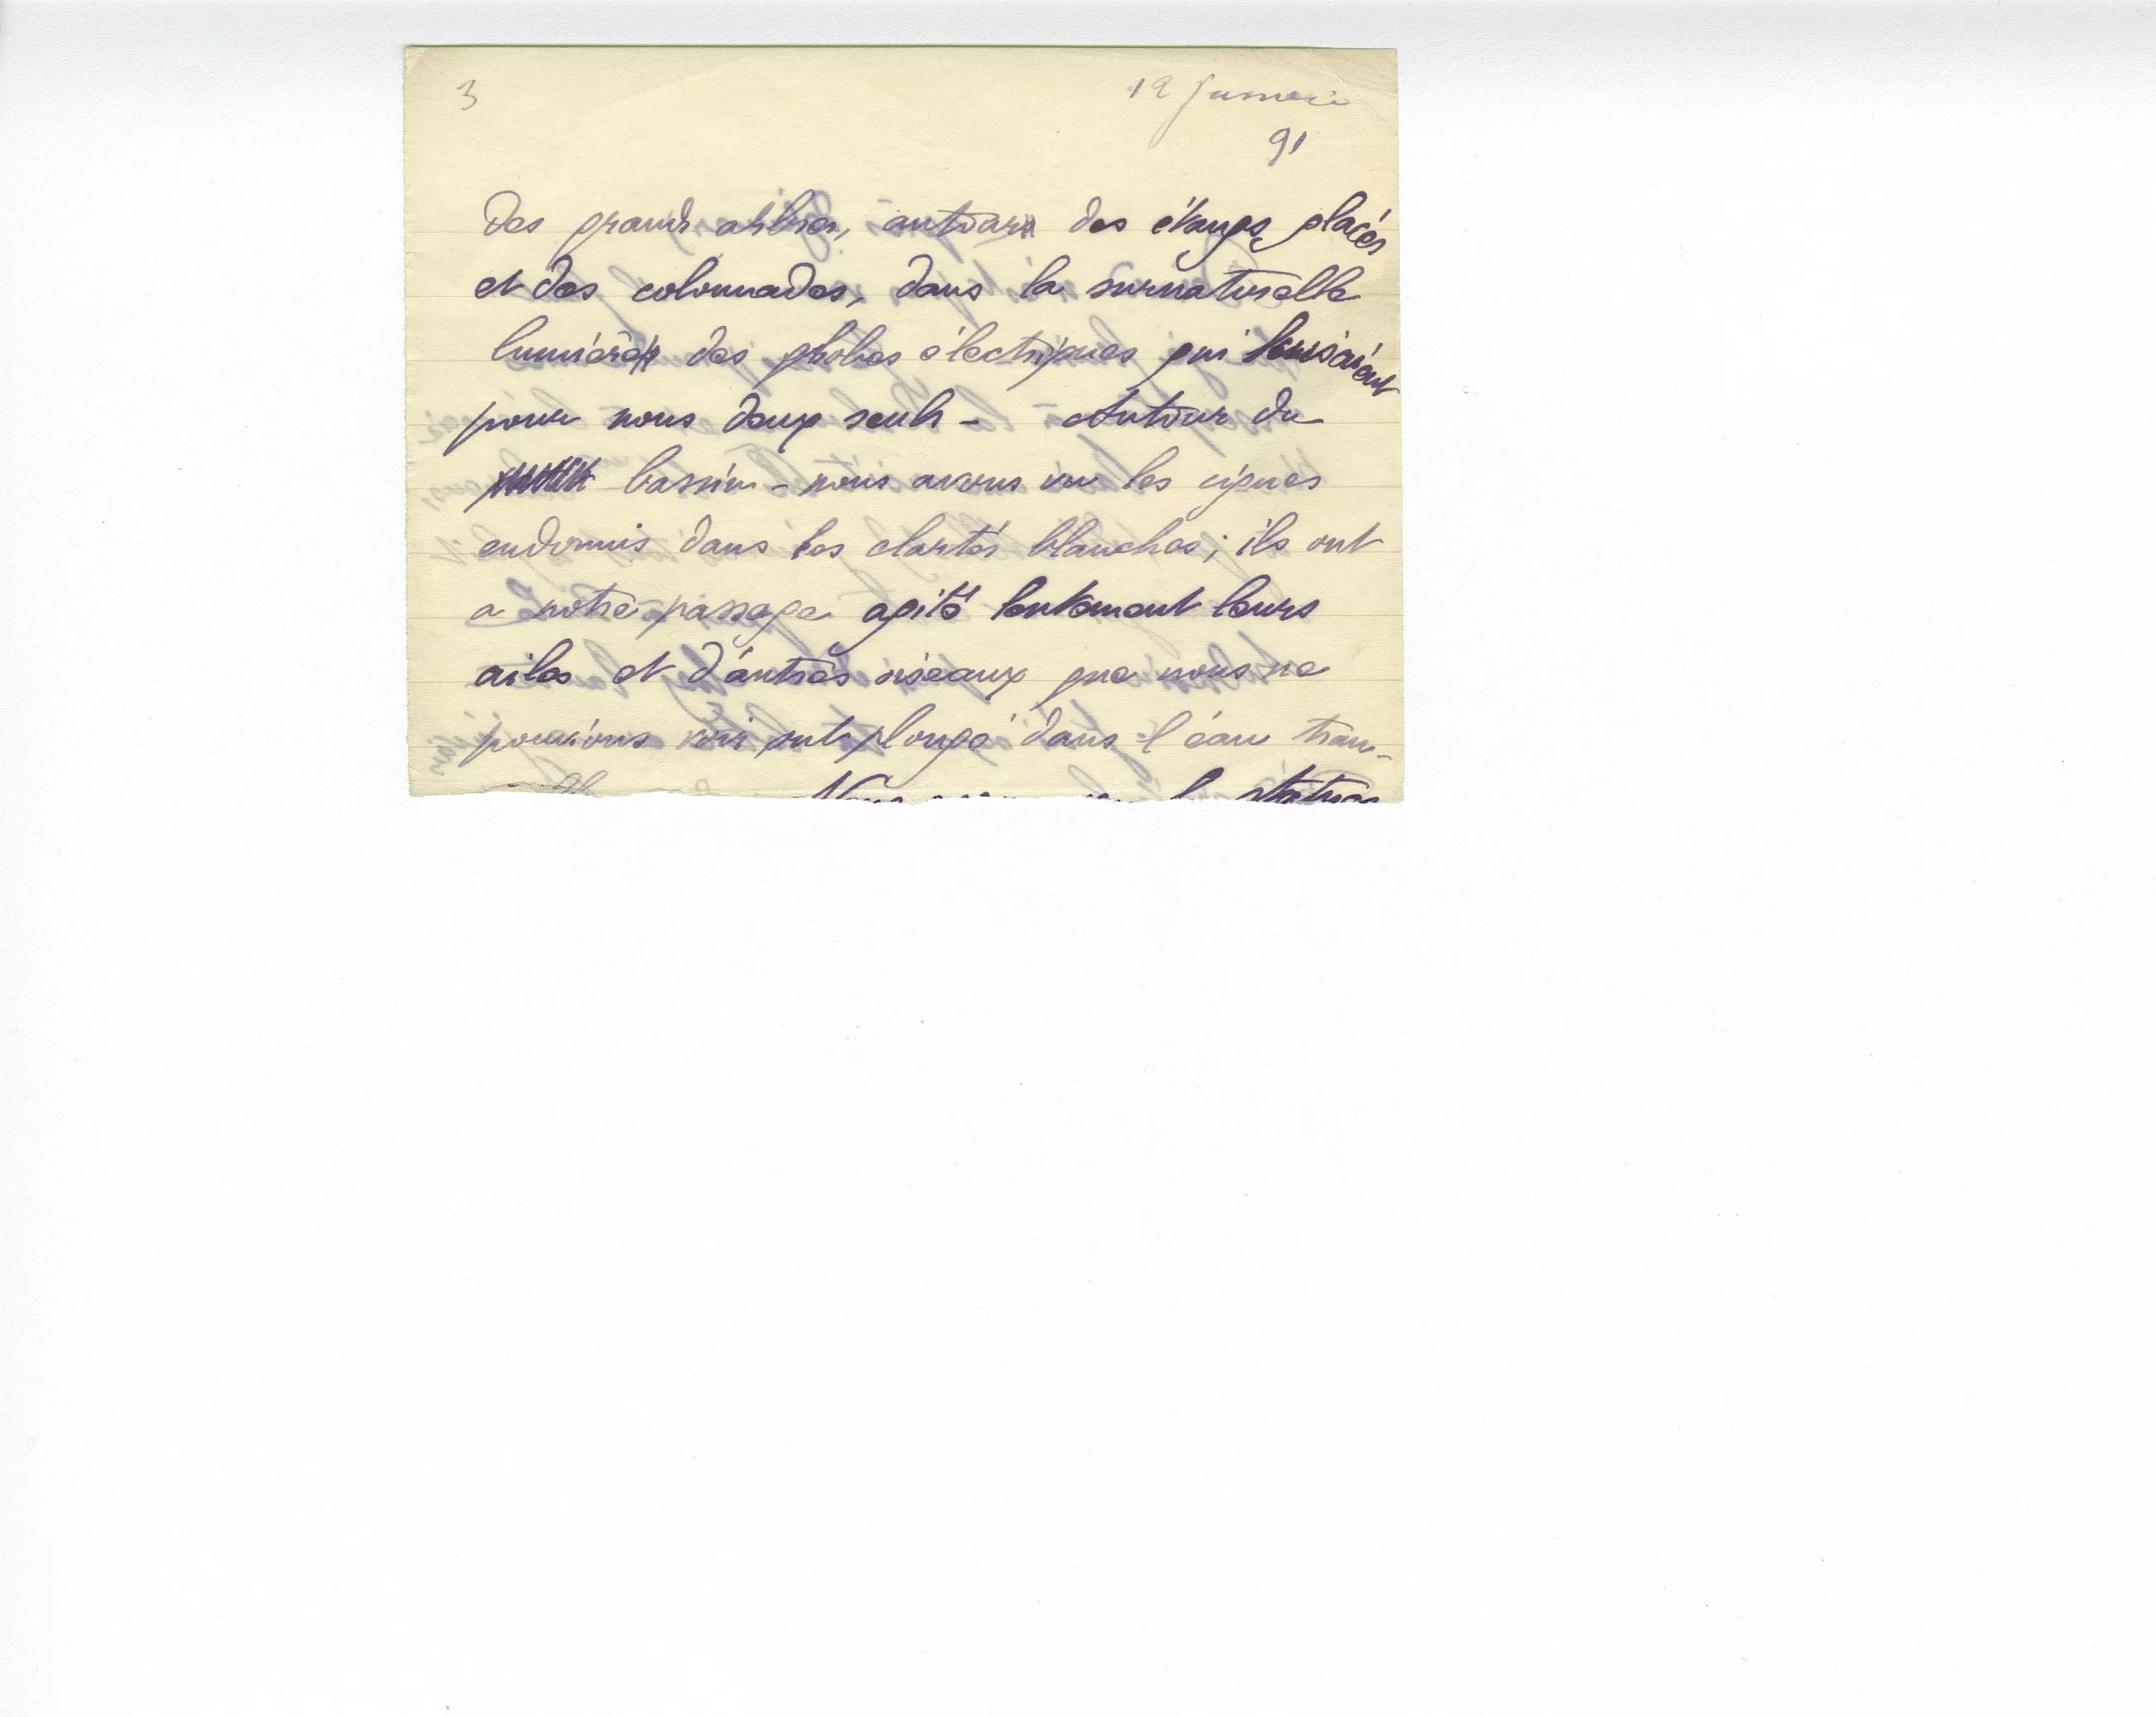 3
12 Janvier
91
Des grands arbres, autour des étangs glacés
et des colonnades, dans la surnaturelle
lumière des globes électriques qui luisaient
pour nous deux seuls - Autour du
bassin - nous avons vu les cignes
endormis dans les clartés blanches ; ils ont
a notre passage agité lentement leurs
ailes et d'autres oiseaux que nous ne
pouvions voir ont plongé dans l'eau tran-
Nous